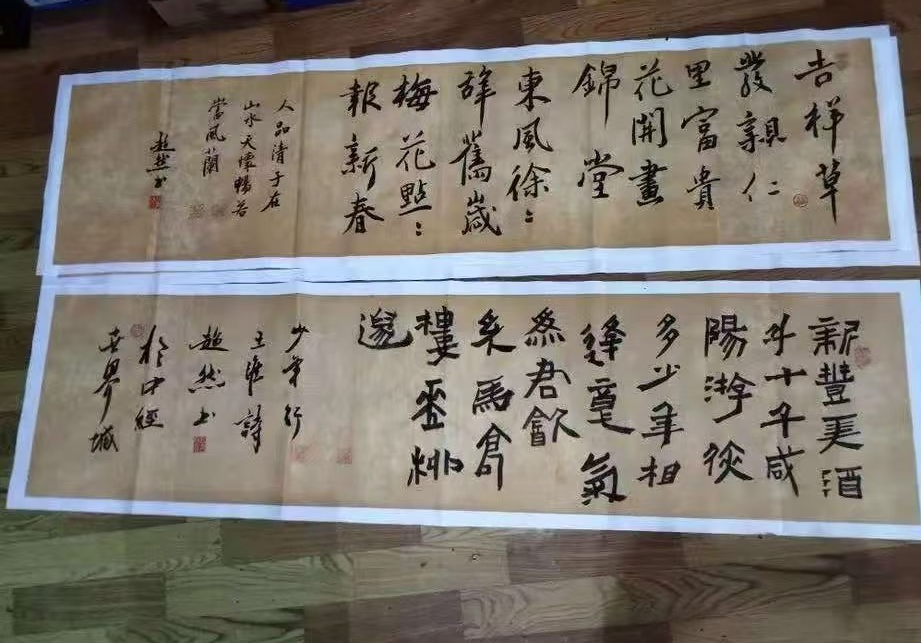 吉祥草
發親仁
里富貴
花開畫
錦堂
東風徐〻
辞舊歲
梅花點〻
報新春
人品清于在
山水天懷暢若
當風蘭
超然书
新豐美酒
斗十千咸
陽游俠
多少年相
逢意氣
為君飲
系馬高
樓垂柳
邊
少年行
王維詩
超然书
於中經
世界城